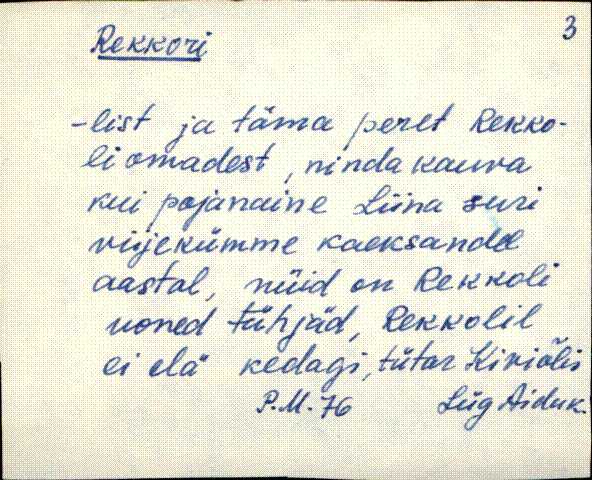 3
Rekkori
-list ja täma peret Rekko-
li omadest, ninda kauva
kui pojanaine Liina suri
viijekümme kaeksandel
aastal, nüid on Rekkoli
uoned tühjäd, Rekkolil
ei elä kedagi, tütar Kiviõlis
P.M. 76 Lüg Aiduk.